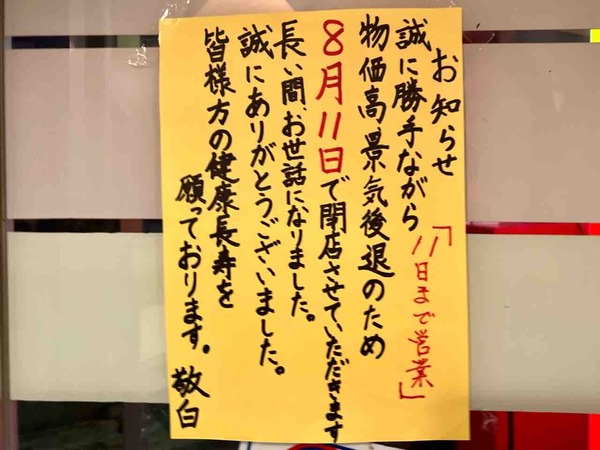 お知らせ
誠に勝手ながら
「11日まで営業」
物価高、景気後退のため
8月11日で閉店させていただきます
長い間、お世話になりました。
誠にありがとうございました。
皆様方の健康長寿を
願っております。
敬白